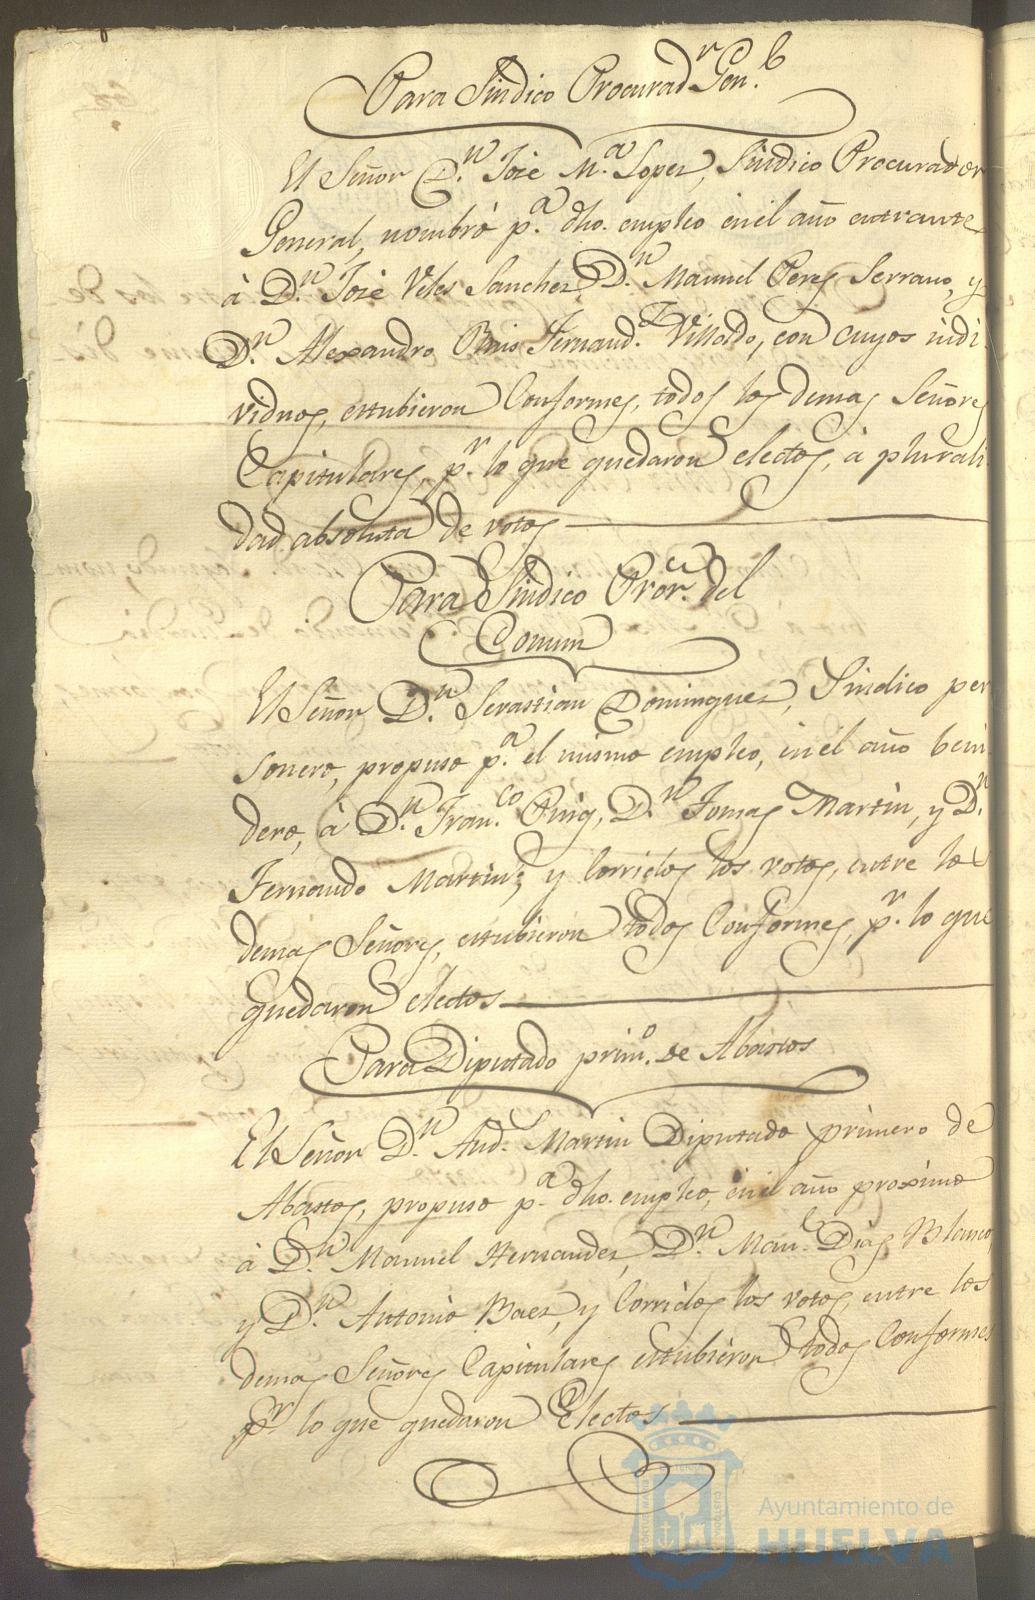 Para Sindico Procurad.r Gen.l
El Señor D.n José M.a Lopez, Sindico Procurador
General, nombró p.a dho. empleo en el año entrante
á D.n José Veles Sanchez, D.n Manuel Peres Serrano, y
D.n Alexandro Fernand.z Villoldo, con cuyos indi
viduos, estubieron Conformes, todos los demas Señores
Capitulares, p.r lo que quedaron electos, á plurali
dad absoluta de votos
Para Sindico Pror. del
Comun
El Señor D.n Sevastian Dominguez, Sindico per
sonero, propuso p.a el mismo empleo, en el año beni
dero, á D.n Fran.co Puig, D.n Tomas Martin, y D.n
Fernando Martinz; y Corridos los votos, entre los
demas Señores, estubieron todos Conformes, p.r lo que
quedaron electos
Para Diputado prim.o de Abastos
El Señor D.n And.s Martin Diputado primero de
Abastos, propuso p.a dho. empleo, en el año proximo
á D.n Manuel Hernandez, D.n Man.l Dias Blanco,
y D.n Antonio Baez, y Corridos los votos, entre los
demas Señores Capitulares estubieron todos Conformes
p.r lo que quedaron Electos
Ayuntamiento de
HUELVA